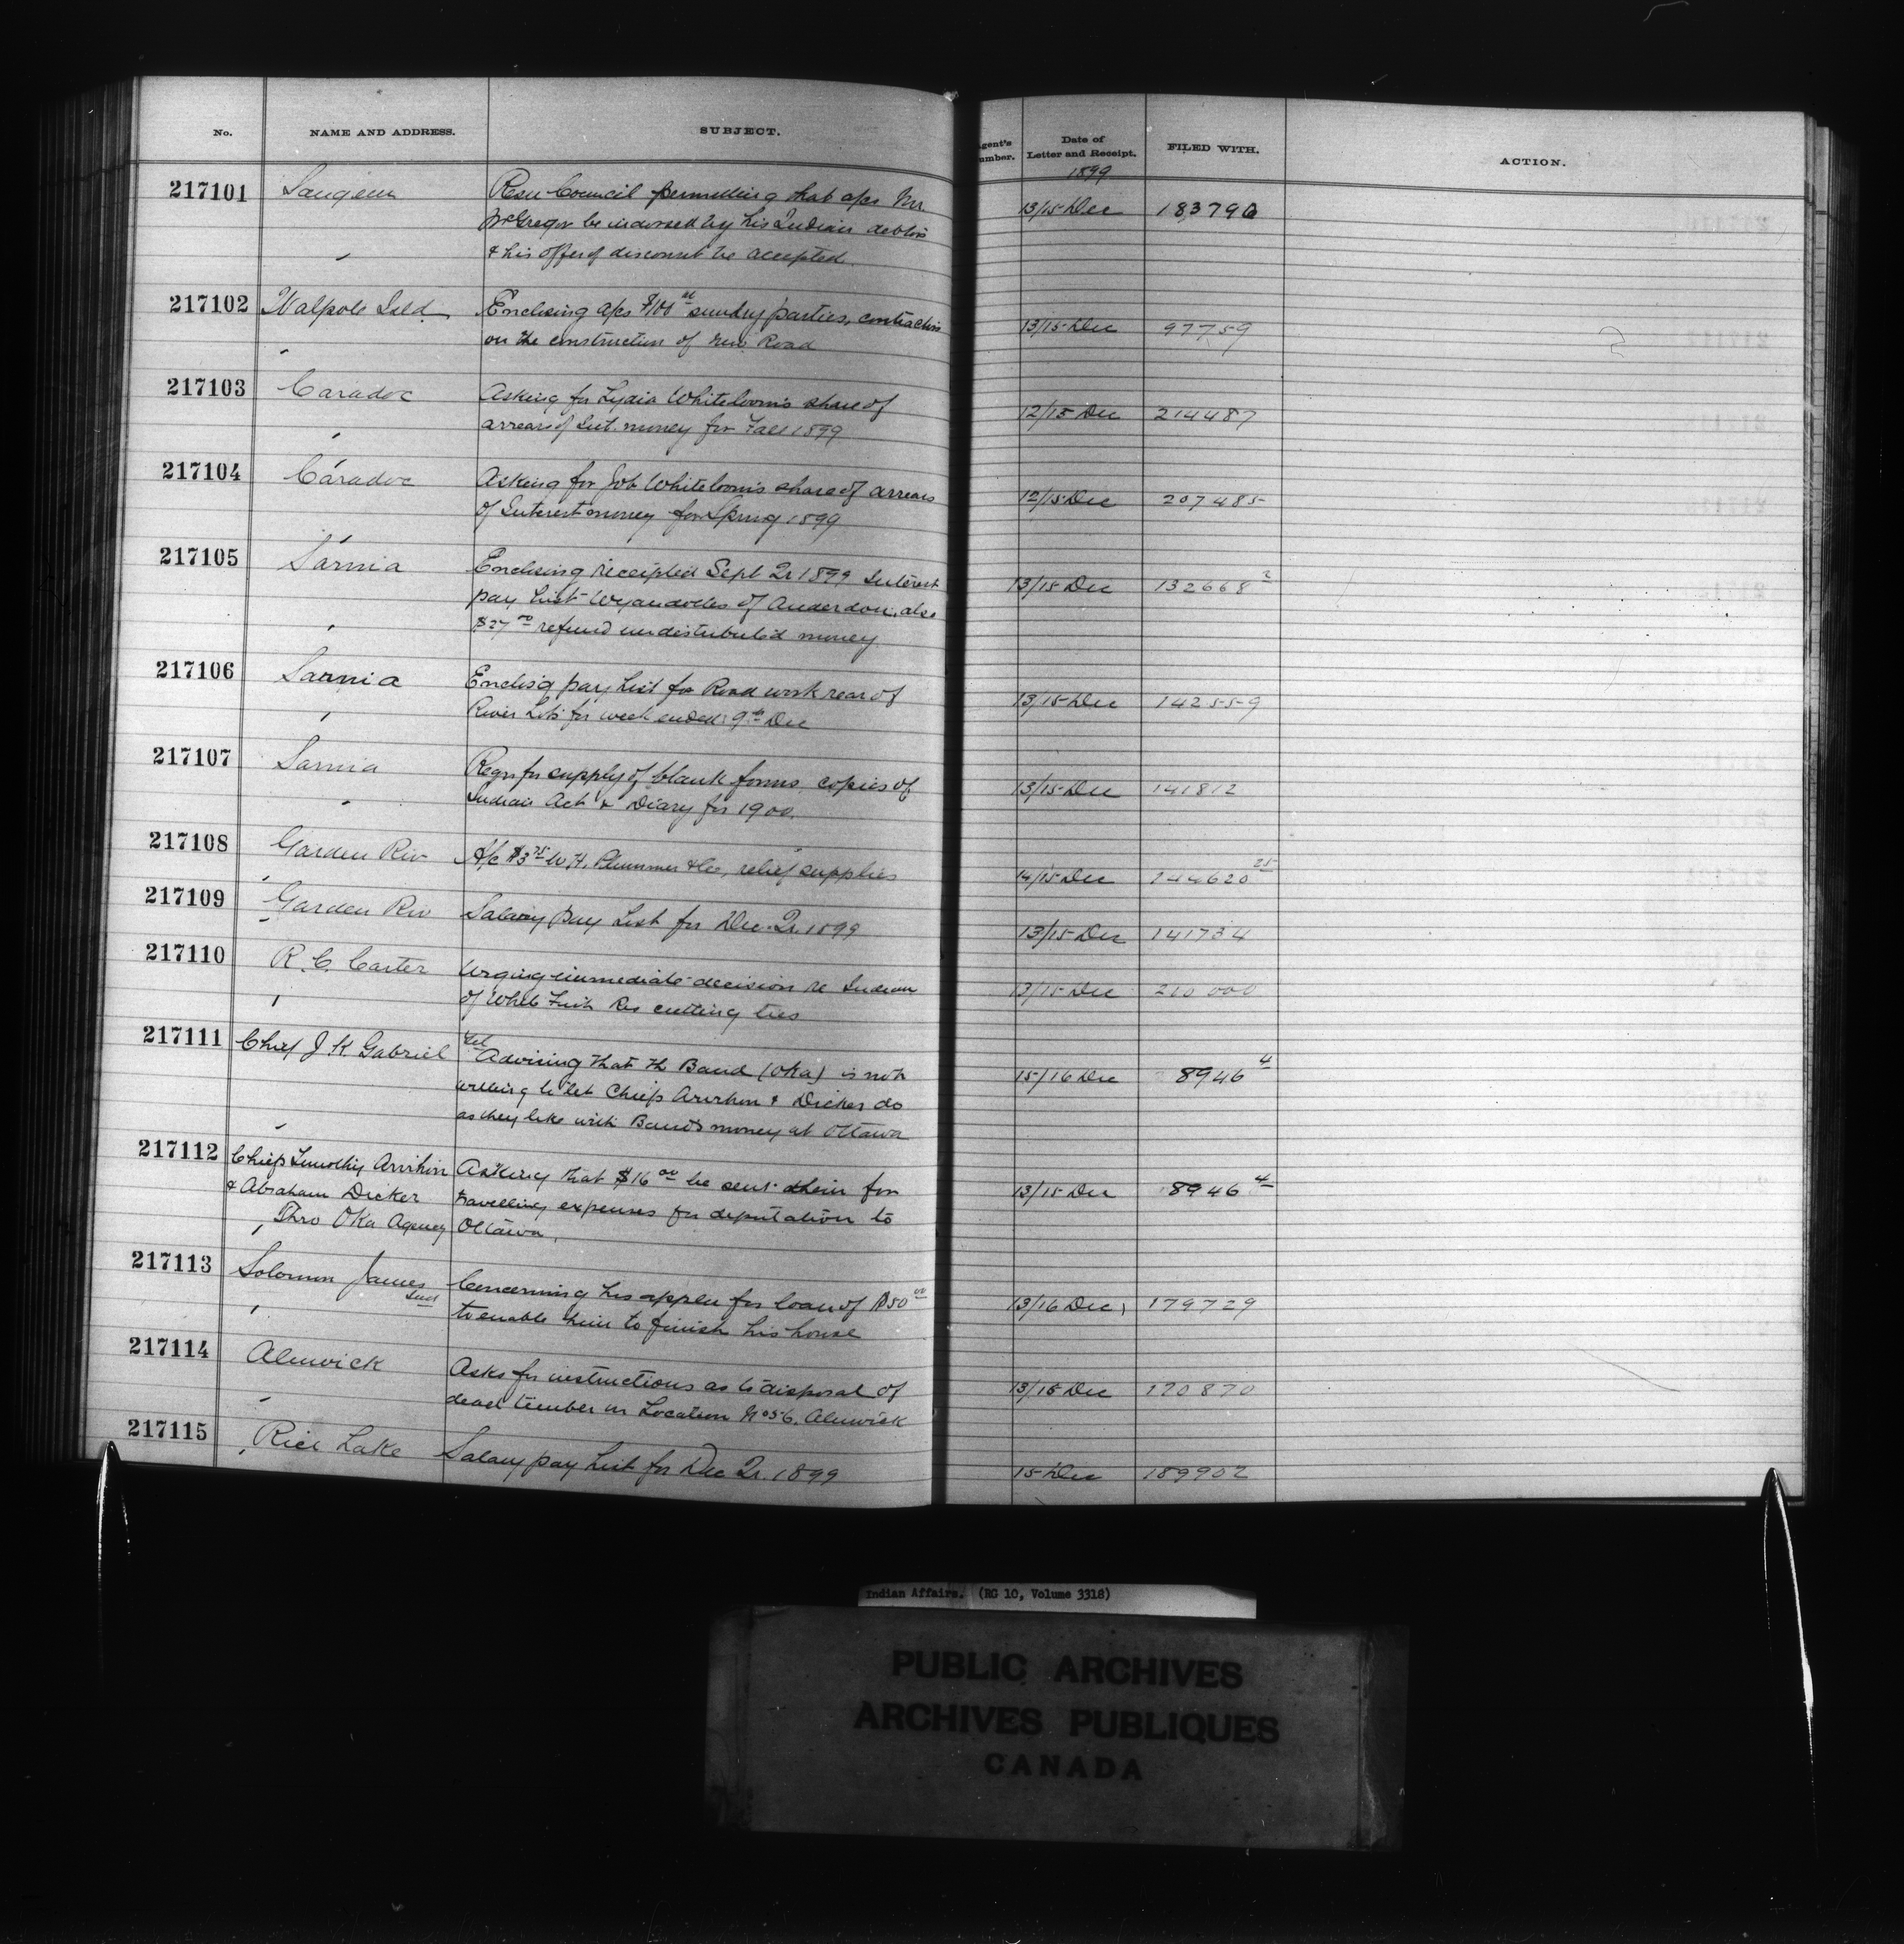 No. NAME AND ADDRESS. SUBJECT. gent's umber. Date of Letter and Receipt. FILED WITH. ACTION.
1899
217101 Saugeen Resn Council permitting that a/cs Mr. 13/15 Dec 183796
McGregor be indorsed by his Indian debtors
& his offer of discount be accepted.
217102 Walpole Isld. Enclosing a/cs $100 sundry parties, contractors 13/15 Dec 97759
on the construction of new Road
217103 Caradoc Asking for Lydia Whiteloon's share of 12/15 Dec 214487
arrears of Int. money for Fall 1899
217104 Caradoc Asking for Job Whiteloon's share of arrears 12/15 Dec 207485
of Interest money for Spring 1899
217105 Sarnia Enclosing receipted Sept Qr 1899 Interest 13/15 Dec 132668 2
pay List Wyandottes of Anderdon, also
$27 00 refund undistributed money
217106 Sarnia Enclos'g pay List for Road work rear of 13/15 Dec 142559
River Lots for week ended 9th Dec
217107 Sarnia Reqn for supply of blank forms, copies of 13/15 Dec 141812
Indian Act & Diary for 1900.
217108 Garden Riv A/c $3 75 W. H. Plummer & Co, relief supplies 14/15 Dec 144620 25
217109 Garden Riv Salary pay List for Dec. Qr. 1899 13/15 Dec 141734
217110 R. C. Carter Urging immediate decision re Indian 13/15 Dec 210000
of White Fish Res cutting ties
217111 Chief J K Gabriel Tel Advising that the Band (Oka) is not 15/16 Dec 8946 4
willing to let Chiefs & Dicker do
as they like with Band's money at Ottawa
217112 Chiefs Timothy Asking that $16 00 be sent them for 13/15 Dec 8946 4
& Abraham Dicker travelling expenses for deputation to
Thro Oka Agency Ottawa.
217113 Solomon James Concerning his appln for loan of $50 00 13/16 Dec 179729
Senr to enable him to finish his house
217114 Alnwick Asks for instructions as to disposal of 13/15 Dec 170870
dead timber on Location No 56. Alnwick
217115 Rice Lake Salary pay List for Dec Qr. 1899 15 Dec 189902
Indian Affairs. (RG 10, Volume 3318)
PUBLIC ARCHIVES
ARCHIVES PUBLIQUES
CANADA